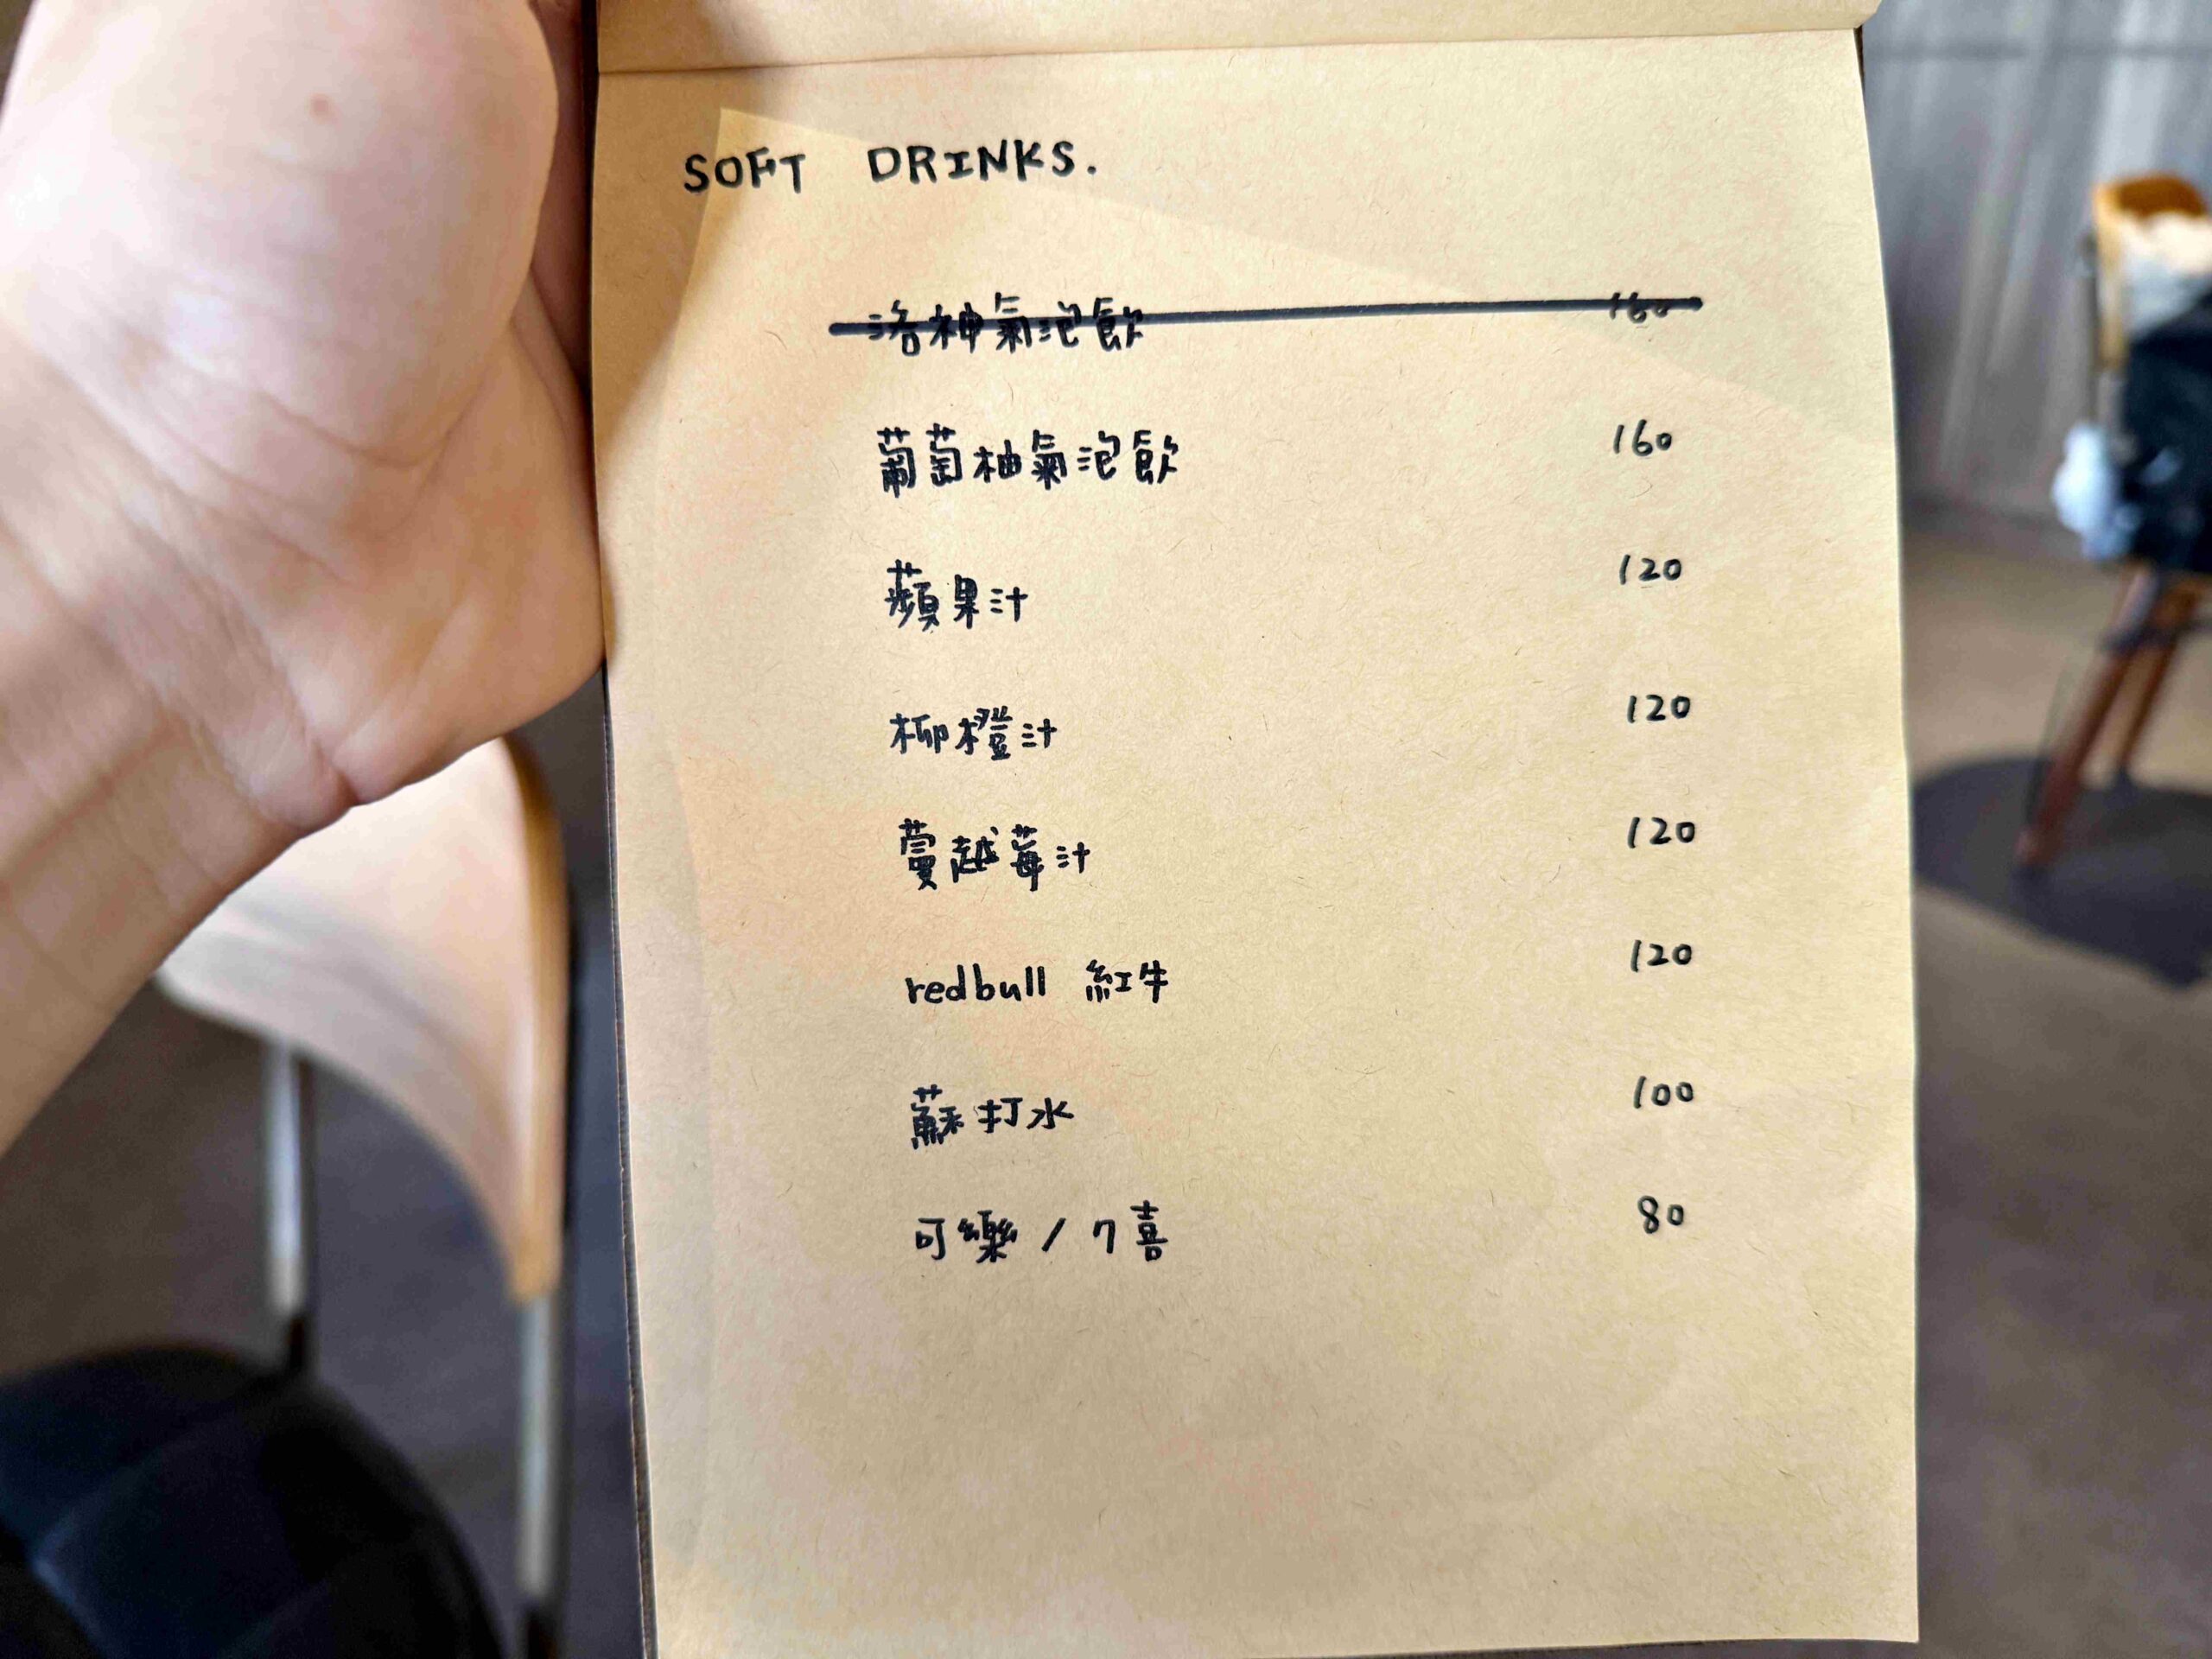 SOFT DRINKS.
洛神氣泡飲 160
葡萄柚氣泡飲 160
蘋果汁 120
柳橙汁 120
蔓越莓汁 120
redbull 紅牛 120
蘇打水 100
可樂 / 7喜 80